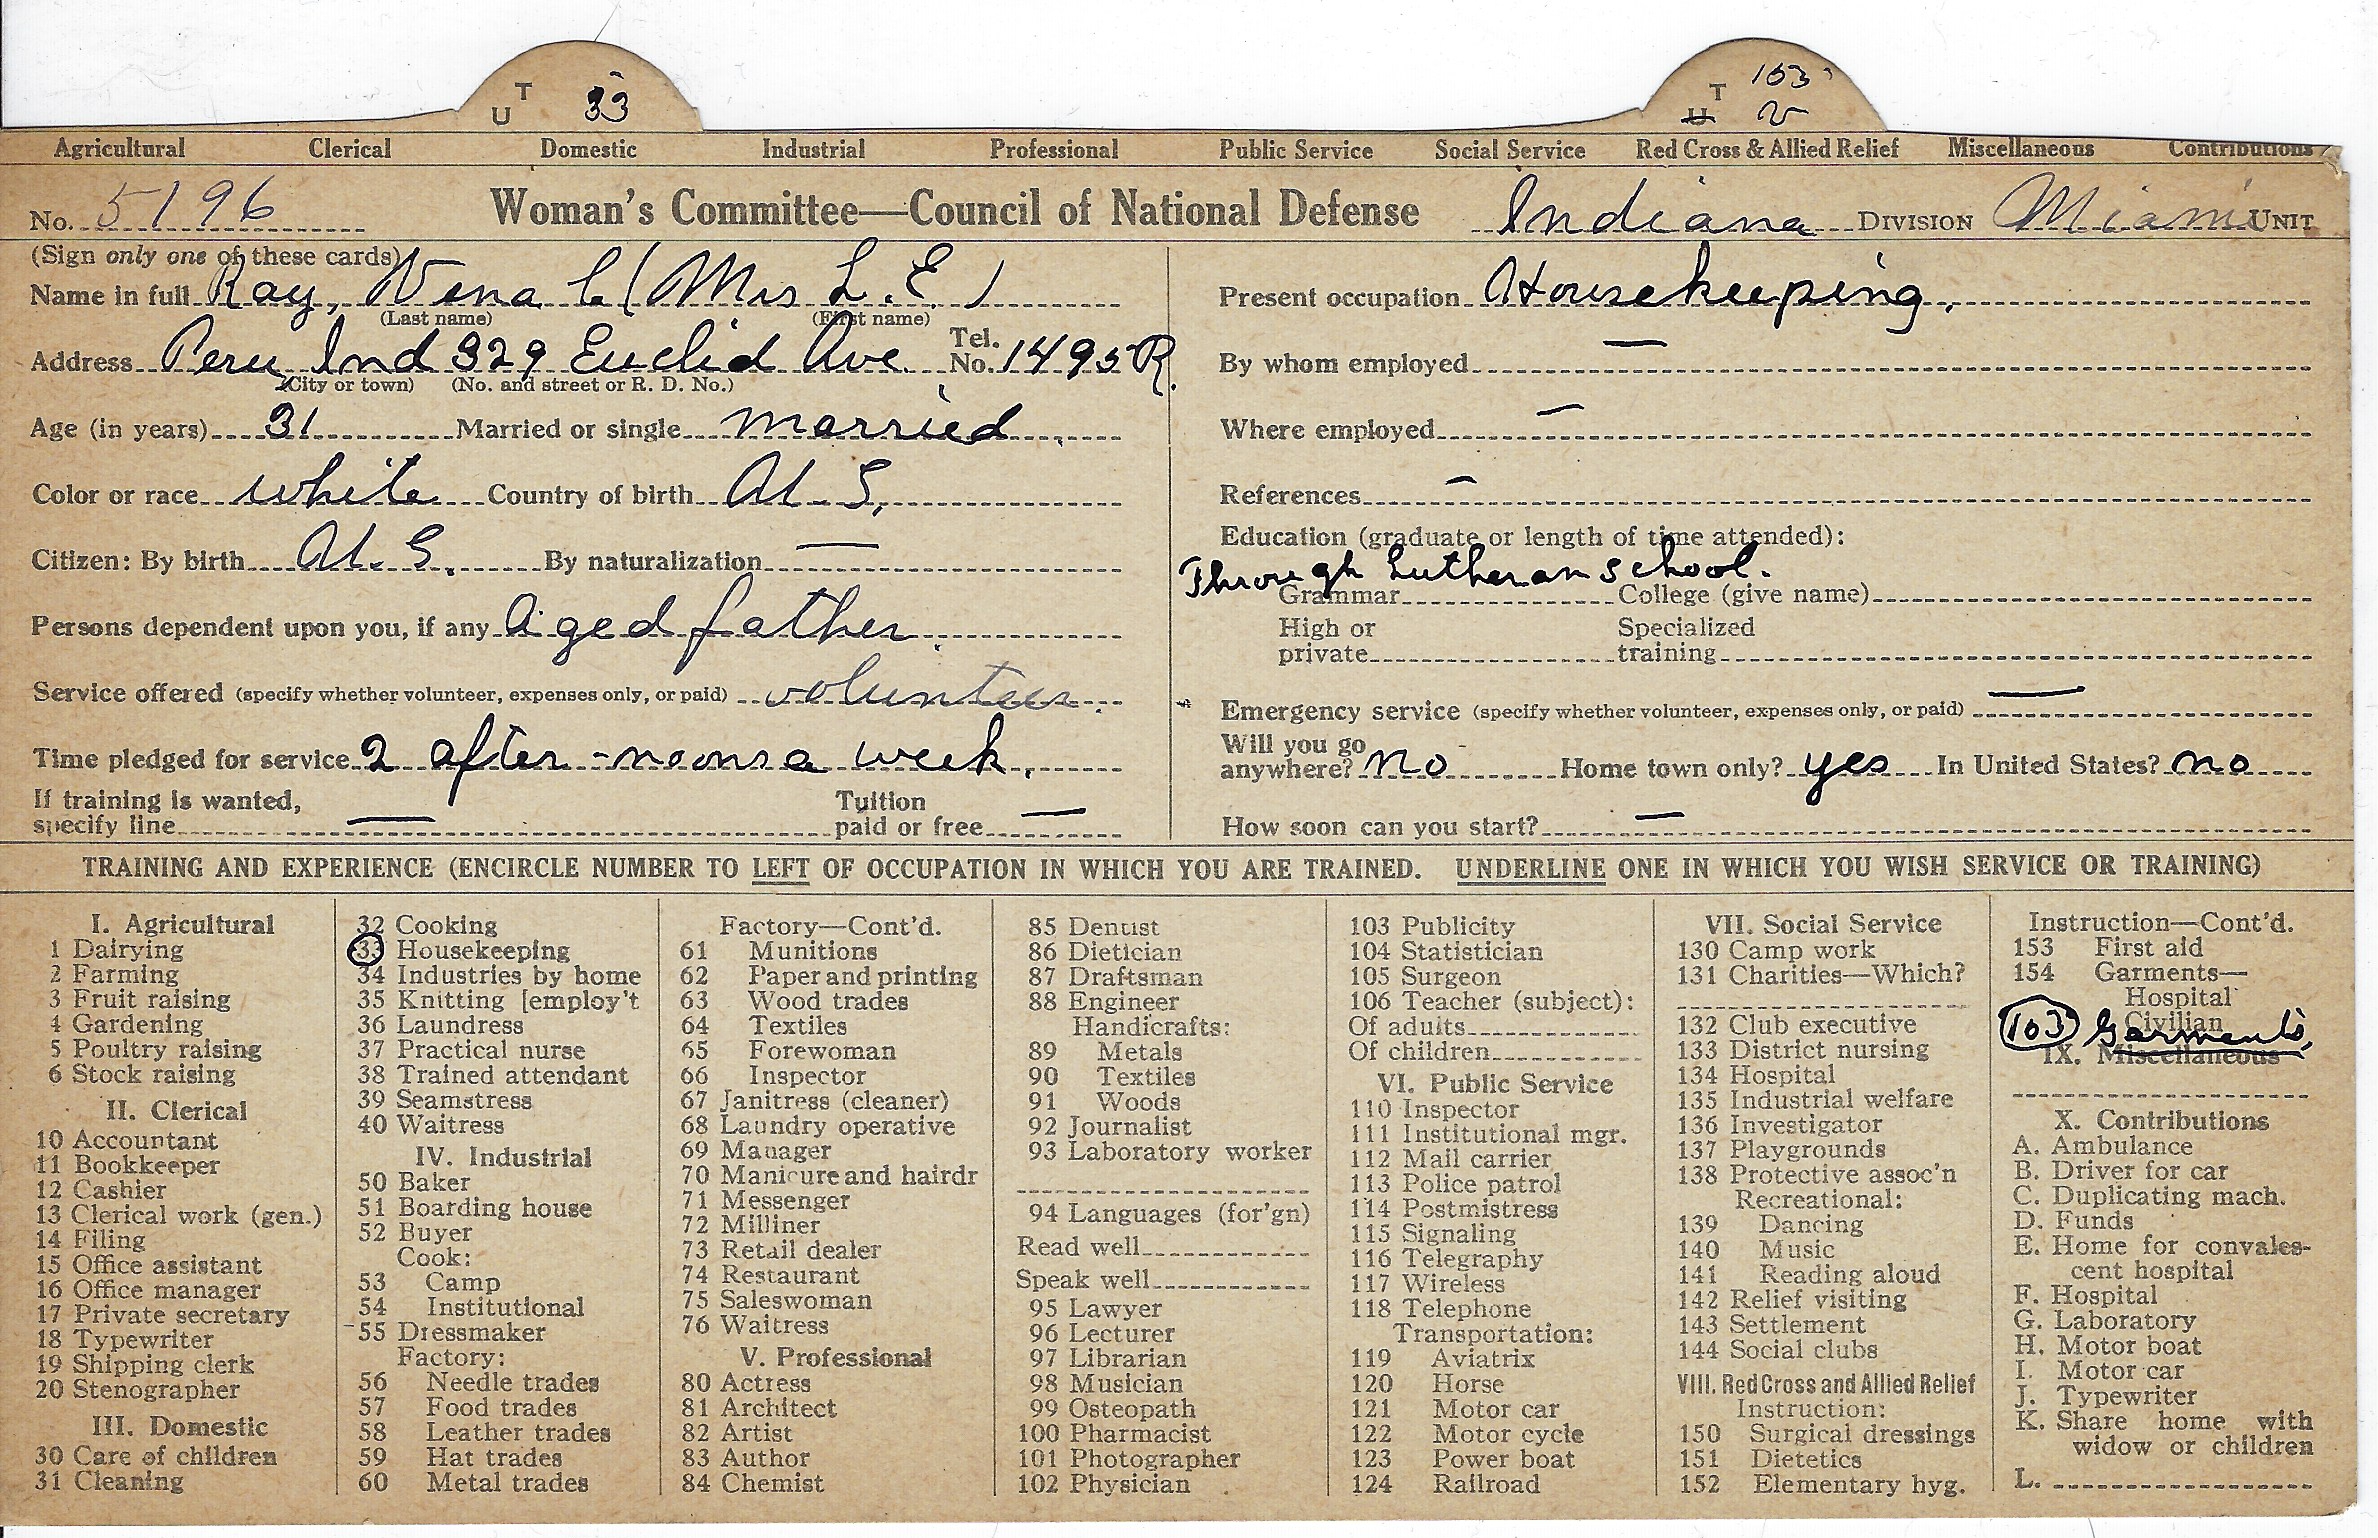 T 33 T 103
U U v
Agricultural Clerical Domestic Industrial Professional Public Service Social Service Red Cross & Allied Relief Miscellaneous Contributions
No. 5196 Woman's Committee—Council of National Defense Indiana DIVISION Miami UNIT
(Sign only one of these cards)
Name in full Ray, Vena C (Mrs L. E.)
(Last name) (First name)
Address Peru, Ind 329 Euclid Ave. Tel. No. 1495 R.
(City or town) (No. and street or R. D. No.)
Age (in years) 31 Married or single married
Color or race white Country of birth U. S.
Citizen: By birth U. S. By naturalization —
Persons dependent upon you, if any Aged father
Service offered (specify whether volunteer, expenses only, or paid) volunteer.
Time pledged for service 2 after-noons a week.
If training is wanted,
specify line — Tuition paid or free —
Present occupation Housekeeping.
By whom employed —
Where employed —
References —
Education (graduate or length of time attended):
Through Lutheran school.
Grammar College (give name)
High or private Specialized training
Emergency service (specify whether volunteer, expenses only, or paid) —
Will you go anywhere? no Home town only? yes In United States? no
How soon can you start? —
TRAINING AND EXPERIENCE (ENCIRCLE NUMBER TO LEFT OF OCCUPATION IN WHICH YOU ARE TRAINED. UNDERLINE ONE IN WHICH YOU WISH SERVICE OR TRAINING)
I. Agricultural
1 Dairying
2 Farming
3 Fruit raising
4 Gardening
5 Poultry raising
6 Stock raising
II. Clerical
10 Accountant
11 Bookkeeper
12 Cashier
13 Clerical work (gen.)
14 Filing
15 Office assistant
16 Office manager
17 Private secretary
18 Typewriter
19 Shipping clerk
20 Stenographer
III. Domestic
30 Care of children
31 Cleaning
32 Cooking
33 Housekeeping
34 Industries by home
35 Knitting [employ't
36 Laundress
37 Practical nurse
38 Trained attendant
39 Seamstress
40 Waitress
IV. Industrial
50 Baker
51 Boarding house
52 Buyer
Cook:
53 Camp
54 Institutional
55 Dressmaker
Factory:
56 Needle trades
57 Food trades
58 Leather trades
59 Hat trades
60 Metal trades
Factory—Cont'd.
61 Munitions
62 Paper and printing
63 Wood trades
64 Textiles
65 Forewoman
66 Inspector
67 Janitress (cleaner)
68 Laundry operative
69 Manager
70 Manicure and hairdr
71 Messenger
72 Milliner
73 Retail dealer
74 Restaurant
75 Saleswoman
76 Waitress
V. Professional
80 Actress
81 Architect
82 Artist
83 Author
84 Chemist
85 Dentist
86 Dietician
87 Draftsman
88 Engineer
Handicrafts:
89 Metals
90 Textiles
91 Woods
92 Journalist
93 Laboratory worker
94 Languages (for'gn)
Read well
Speak well
95 Lawyer
96 Lecturer
97 Librarian
98 Musician
99 Osteopath
100 Pharmacist
101 Photographer
102 Physician
103 Publicity
104 Statistician
105 Surgeon
106 Teacher (subject):
Of adults
Of children
VI. Public Service
110 Inspector
111 Institutional mgr.
112 Mail carrier
113 Police patrol
114 Postmistress
115 Signaling
116 Telegraphy
117 Wireless
118 Telephone
Transportation:
119 Aviatrix
120 Horse
121 Motor car
122 Motor cycle
123 Power boat
124 Railroad
VII. Social Service
130 Camp work
131 Charities—Which?
132 Club executive
133 District nursing
134 Hospital
135 Industrial welfare
136 Investigator
137 Playgrounds
138 Protective assoc'n
Recreational:
139 Dancing
140 Music
141 Reading aloud
142 Relief visiting
143 Settlement
144 Social clubs
VIII. Red Cross and Allied Relief
Instruction:
150 Surgical dressings
151 Dietetics
152 Elementary hyg.
Instruction—Cont'd.
153 First aid
154 Garments—
Hospital
Civilian
103 Garments.
IX. Miscellaneous
X. Contributions
A. Ambulance
B. Driver for car
C. Duplicating mach.
D. Funds
E. Home for convales-
cent hospital
F. Hospital
G. Laboratory
H. Motor boat
I. Motor car
J. Typewriter
K. Share home with
widow or children
L.